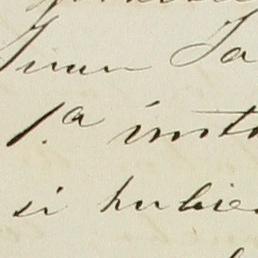 Juan Ja
1.ª inst
si hubie